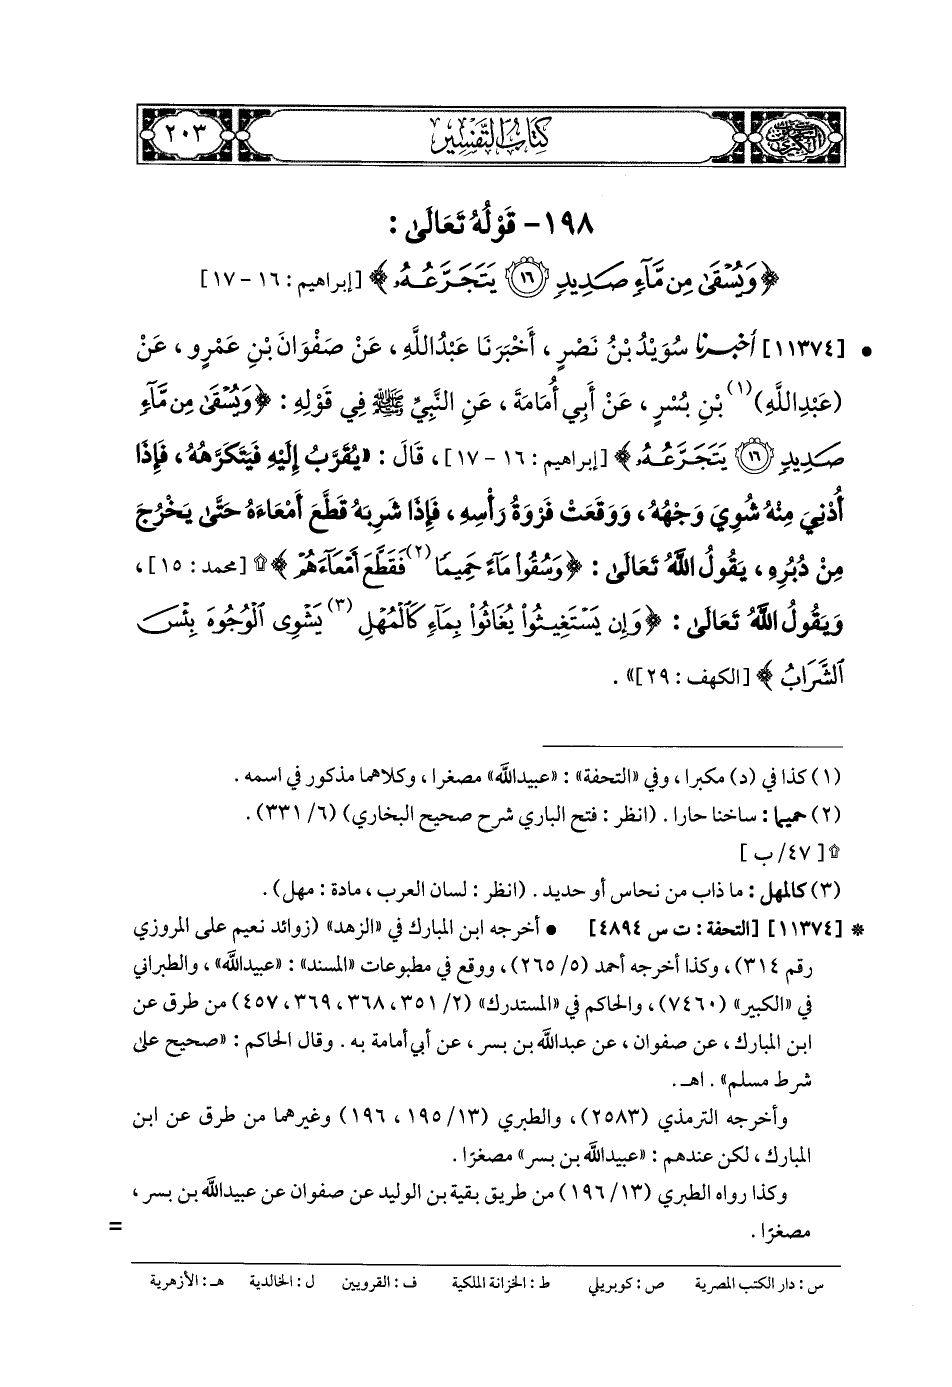 ٢٠٣
كتاب التفسير
السنن الكبرى
١٩٨- قَوْلُهُ تَعَالَىٰ :
﴿ وَيُسْقَىٰ مِن مَّآءٍ صَدِيدٍ ۝١٦ يَتَجَرَّعُهُۥ ﴾ [إبراهيم : ١٦ - ١٧]
• [١١٣٧٤] أَخْبَرَنَا سُوَيْدُ بْنُ نَصْرٍ ، أَخْبَرَنَا عَبْدُ اللَّهِ ، عَنْ صَفْوَانَ بْنِ عَمْرٍو ، عَنْ
(عَبْدِ اللَّهِ)(١) بْنِ بُسْرٍ ، عَنْ أَبِي أُمَامَةَ ، عَنِ النَّبِيِّ ﷺ فِي قَوْلِهِ : ﴿ وَيُسْقَىٰ مِن مَّآءٍ
صَدِيدٍ ۝١٦ يَتَجَرَّعُهُۥ ﴾ [إبراهيم : ١٦ - ١٧] ، قَالَ : «يُقَرَّبُ إِلَيْهِ فَيَتَكَرَّهُهُ ، فَإِذَا
أُدْنِيَ مِنْهُ شُوِيَ وَجْهُهُ ، وَوَقَعَتْ فَرْوَةُ رَأْسِهِ ، فَإِذَا شَرِبَهُ قَطَّعَ أَمْعَاءَهُ حَتَّىٰ يَخْرُجَ
مِنْ دُبُرِهِ ، يَقُولُ اللَّهُ تَعَالَىٰ : ﴿ وَسُقُوا۟ مَآءً حَمِيمًا (٢) فَقَطَّعَ أَمْعَآءَهُمْ ﴾ ۩ [محمد : ١٥] ،
وَيَقُولُ اللَّهُ تَعَالَىٰ : ﴿ وَإِن يَسْتَغِيثُوا۟ يُغَاثُوا۟ بِمَآءٍ كَٱلْمُهْلِ (٣) يَشْوِى ٱلْوُجُوهَ بِئْسَ
ٱلشَّرَابُ ﴾ [الكهف : ٢٩]» .
(١) كذا في (د) مكبرا ، وفي «التحفة» : «عبيدالله» مصغرا ، وكلاهما مذكور في اسمه .
(٢) حميما : ساخنا حارا . (انظر : فتح الباري شرح صحيح البخاري) (٦/ ٣٣١) .
۩ [ ٤٧/ ب ]
(٣) كالمهل : ما ذاب من نحاس أو حديد . (انظر : لسان العرب ، مادة : مهل) .
* [١١٣٧٤] [التحفة : ت س ٤٨٩٤] • أخرجه ابن المبارك في «الزهد» (زوائد نعيم على المروزي
رقم ٣١٤) ، وكذا أخرجه أحمد (٥/ ٢٦٥) ، ووقع في مطبوعات «المسند» : «عبيدالله» ، والطبراني
في «الكبير» (٧٤٦٠) ، والحاكم في «المستدرك» (٢/ ٣٥١، ٣٦٨، ٣٦٩، ٤٥٧) من طرق عن
ابن المبارك ، عن صفوان ، عن عبدالله بن بسر ، عن أبي أمامة به . وقال الحاكم : «صحيح على
شرط مسلم» . اهـ .
وأخرجه الترمذي (٢٥٨٣) ، والطبري (١٣/ ١٩٥ ، ١٩٦) وغيرهما من طرق عن ابن
المبارك ، لكن عندهم : «عبيدالله بن بسر» مصغرًا .
وكذا رواه الطبري (١٣/ ١٩٦) من طريق بقية بن الوليد عن صفوان عن عبيدالله بن بسر ،
مصغرًا . =
س : دار الكتب المصرية ص : كوبريلي ط : الخزانة الملكية ف : القرويين ل : الخالدية هـ : الأزهرية